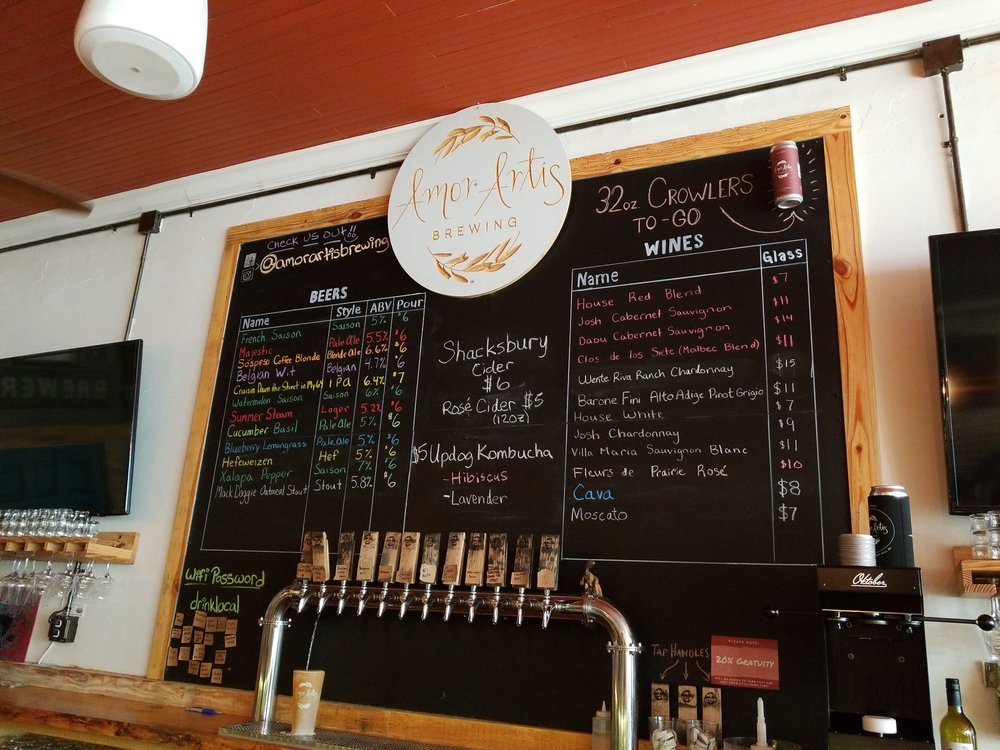 Amor Artis
BREWING
CHECK US OUT!!
@amorartisbrewing
BEERS
Name Style ABV Pour
French Saison Saison 5% $6
Majestic Pale Ale 5.5% $6
Sospeso Coffee Blonde Blonde Ale 6.6% $6
Belgian Wit Belgian 4.7% $6
Cruisin Down the Street in My 64 IPA 6.4% $7
Watermelon Saison Saison 6% $6
Summer Steam Lager 5.2% $6
Cucumber Basil Pale Ale 5% $6
Blueberry Lemongrass Pale Ale 5% $6
Hefeweizen Hef 5% $6
Xalapa Pepper Saison 7% $6
Mack Doggie Oatmeal Stout Stout 5.8% $6
Wifi Password
drinklocal
Shacksbury
Cider
$6
Rosé Cider $5
(12oz)
$5 Updog Kombucha
-Hibiscus
-Lavender
32oz CROWLERS
TO-GO
WINES
Name Glass
House Red Blend $7
Josh Cabernet Sauvignon $11
Daou Cabernet Sauvignon $14
Clos de los Siete (Malbec Blend) $11
Wente Riva Ranch Chardonnay $15
Barone Fini Alto Adige Pinot Grigio $11
House White $7
Josh Chardonnay $9
Villa Maria Sauvignon Blanc $11
Fleurs de Prairie Rosé $10
Cava $8
Moscato $7
TAP HANDLES
PLEASE NOTE
20% GRATUITY
Oktober